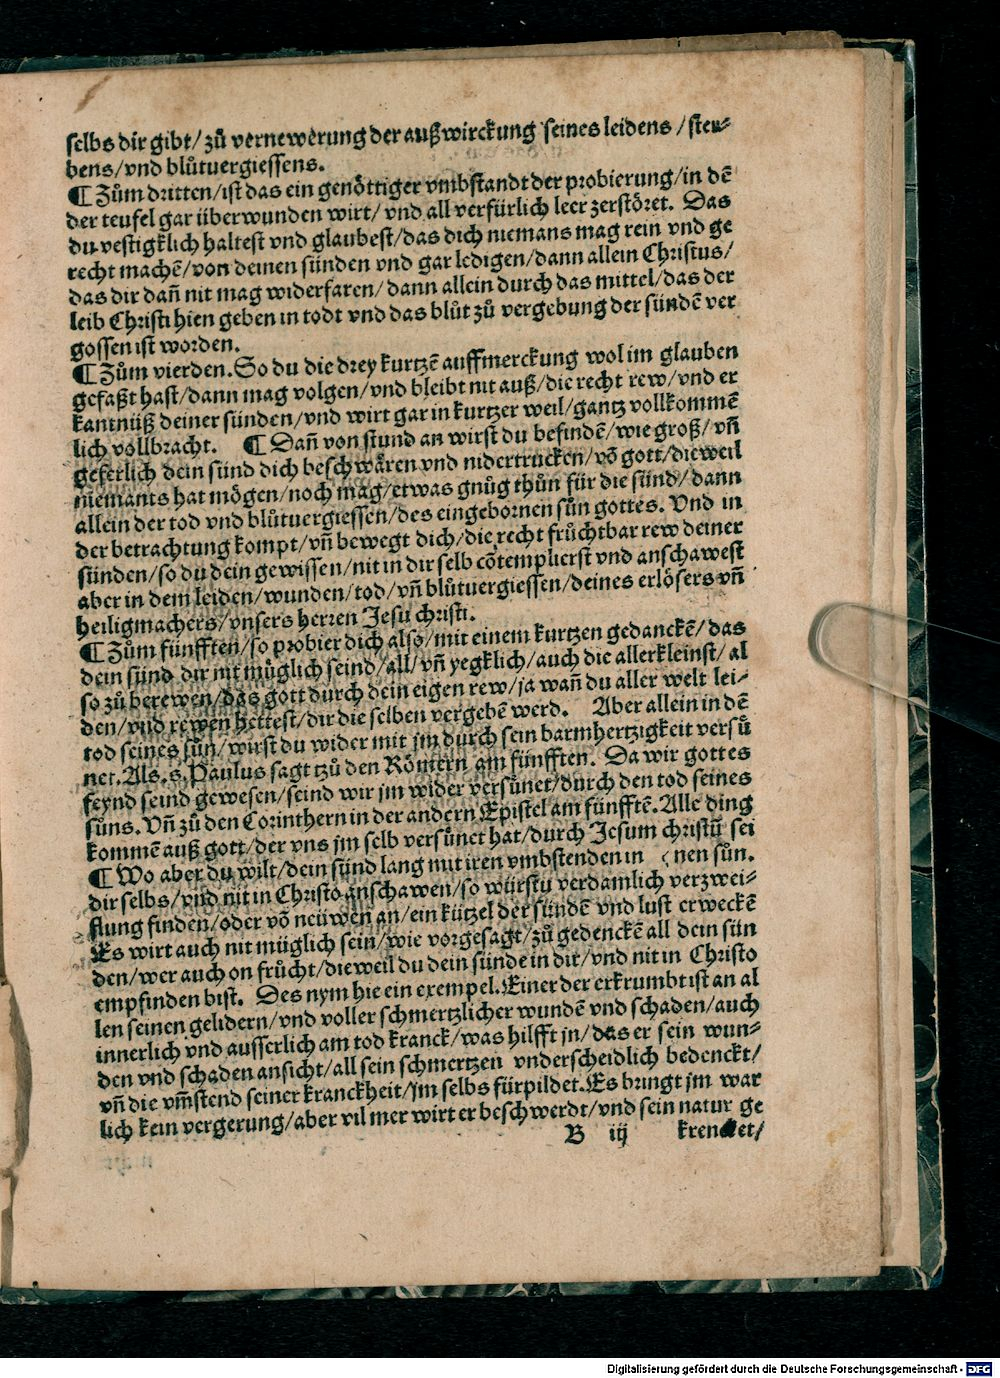 selbs dir gibt/ zů vernewerung der außwirckung seines leidens /ster-
bens/vnd blůtuergiessens.
¶ Zům dritten/ist das ein genöttiger vmbstandt der probierung/in dē
der teufel gar überwunden wirt/ vnd all verfürlich leer zerstöret. Das
du vestigklich haltest vnd glaubest/das dich niemans mag rein vnd ge
recht machē/von deinen sünden vnd gar ledigen/dann allein Christus/
das dir dañ nit mag widerfaren/ dann allein durch das mittel/das der
leib Christi hien geben in todt vnd das blůt zů vergebung der sündē ver
gossen ist worden.
¶ Zům vierden. So du die drey kurtzē auffmerckung wol im glauben
gefaßt hast/dann mag volgen/vnd bleibt nit auß/die recht rew/vnd er
kantnüß deiner sünden/vnd wirt gar in kurtzer weil/gantz vollkommē
lich vollbracht. ¶ Dañ von stund an wirst du befindē/wie groß/ vñ
geferlich dein sünd dich beschwären vnd nidertrucken/vō gott/dieweil
niemants hat mögen/noch mag/etwas gnůg thůn für die sünd/dann
allein der tod vnd blůtuergiessen/des eingebornen sůn gottes. Vnd in
der betrachtung kompt/vñ bewegt dich/die recht frůchtbar rew deiner
sünden/so du dein gewissen/nit in dir selb cōtemplierst vnd anschawest
aber in dem leiden/wunden/tod/vñ blůtuergiessen/deines erlösers vñ
heiligmachers/vnsers herren Jesu christi.
¶ Zům fünfften/so probier dich also/mit einem kurtzen gedanckē/das
dein sünd dir nit müglich seind/all/vñ yegklich/auch die allerkleinst/al
so zů berewen/das gott durch dein eigen rew/ja wañ du aller welt lei-
den/vnd rewen hettest/dir die selben vergebē werd. Aber allein in dē
tod seines sůn/wirst du wider mit jm durch sein barmhertzigkeit versů
net. Als .s. Paulus sagt tzů den Römern am fünfften. Da wir gottes
feynd seind gewesen/seind wir jm wider versůnet/durch den tod seines
sůns. Vñ zů den Corinthern in der andern Epistel am fünfftē. Alle ding
kommē auß gott/der vns jm selb versůnet hat/durch Jesum christū sei
¶ Wo aber du wilt/dein sünd lang mit iren vmbstenden in nen sůn.
dir selbs/vnd nit in Christo anschawen/so würstu verdamlich verzwei-
flung finden/oder vō neüwen an/ein kützel der sündē vnd lust erweckē
Es wirt auch nit müglich sein/wie vorgesagt/zů gedenckē all dein sün
den/wer auch on frůcht/dieweil du dein sünde in dir/vnd nit in Christo
empfinden bist. Des nym hie ein exempel. Einer der erkrumbt ist an al
len seinen gelidern/vnd voller schmertzlicher wundē vnd schaden/auch
innerlich vnd ausserlich am tod kranck/was hilfft jn/das er sein wun-
den vnd schaden ansicht/all sein schmertzen vnderscheidlich bedenckt/
vñ die vm̄stend seiner kranckheit/jm selbs fürpildet. Es bringt jm war
lich kein vergerung/aber vil mer wirt er beschwerdt/vnd sein natur ge
B iij krencket/
Digitalisierung gefördert durch die Deutsche Forschungsgemeinschaft - DFG